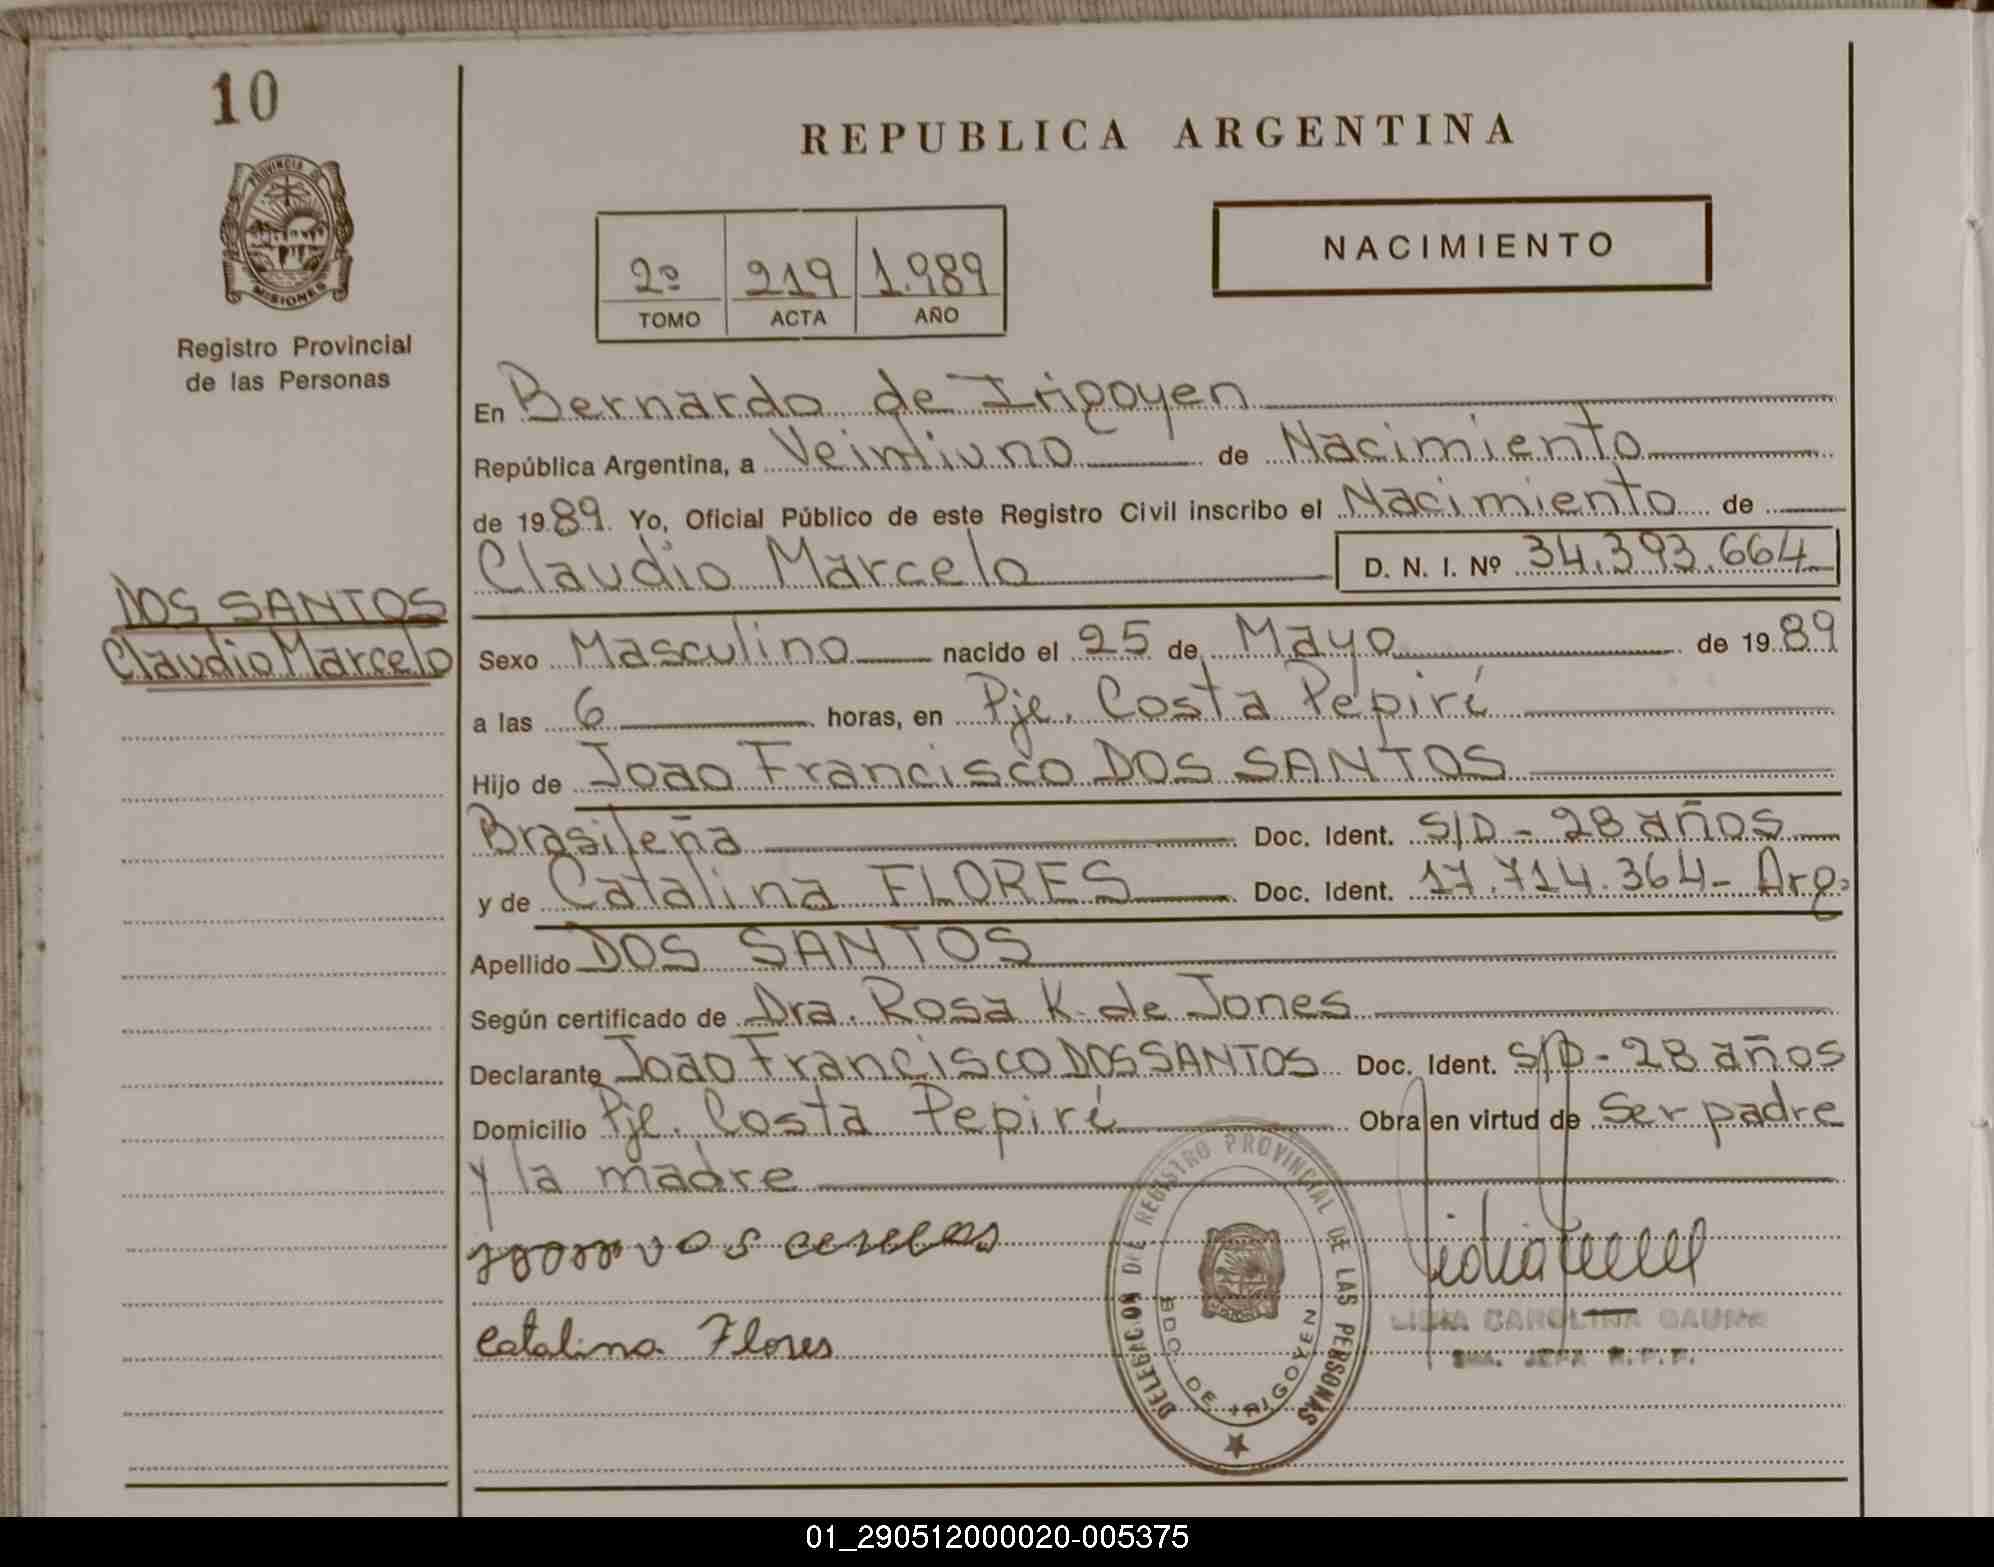 10
PROVINCIA DE
MISIONES
Registro Provincial
de las Personas
DOS SANTOS
Claudio Marcelo
REPUBLICA ARGENTINA
NACIMIENTO
2º 219 1.989
TOMO ACTA AÑO
En Bernardo de Irigoyen
República Argentina, a Veintiuno de Nacimiento
de 1989 Yo, Oficial Público de este Registro Civil inscribo el Nacimiento de
Claudio Marcelo D. N. I. Nº 34.393.664
Sexo Masculino nacido el 25 de Mayo de 1989
a las 6 horas, en Pje. Costa Pepirí
Hijo de Joao Francisco DOS SANTOS
Brasileña Doc. Ident. S/D - 28 años
y de Catalina FLORES Doc. Ident. 17.714.364- Arg.
Apellido DOS SANTOS
Según certificado de Dra. Rosa K. de Jones
Declarante Joao Francisco DOS SANTOS Doc. Ident. S/D - 28 años
Domicilio Pje. Costa Pepirí Obra en virtud de Ser padre
y la madre
Catalina Flores
DELEGACION DE REGISTRO PROVINCIAL DE LAS PERSONAS
BDO. DE IRIGOYEN
LIDIA CAROLINA GAUNA
JEFA R.P.P.
01_290512000020-005375